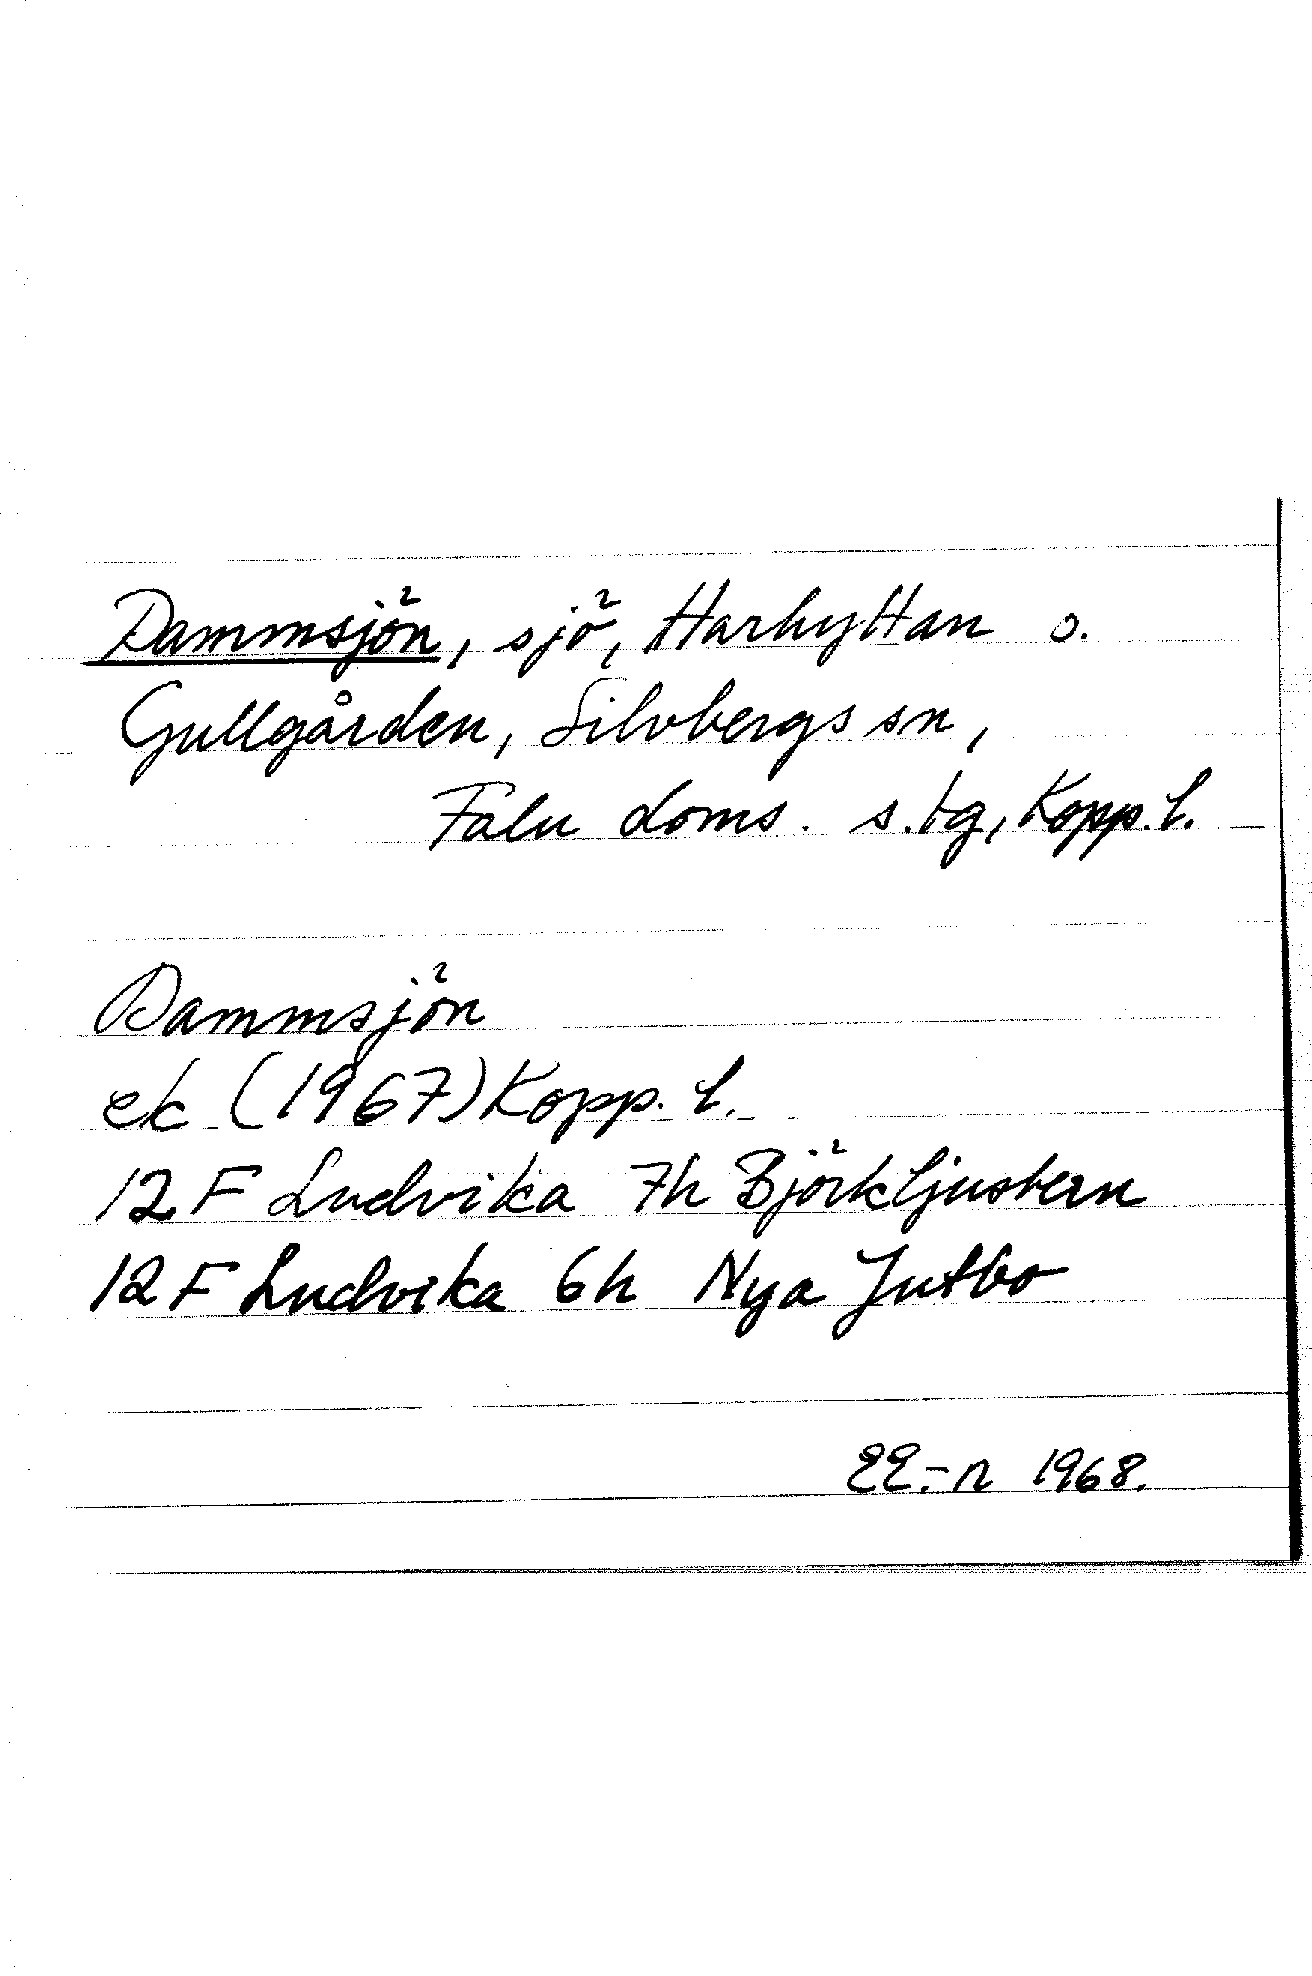 Dammsjön, sjö, Harhyttan o.
Gullgården, Silvbergs sn,
Falu doms. s. tg, Kopp. l.
Dammsjön
ek (1967) Kopp. l.
12 F Ludvika 7h Björkljustern
12 F Ludvika 6h Nya Jutbo
EE.-n 1968.